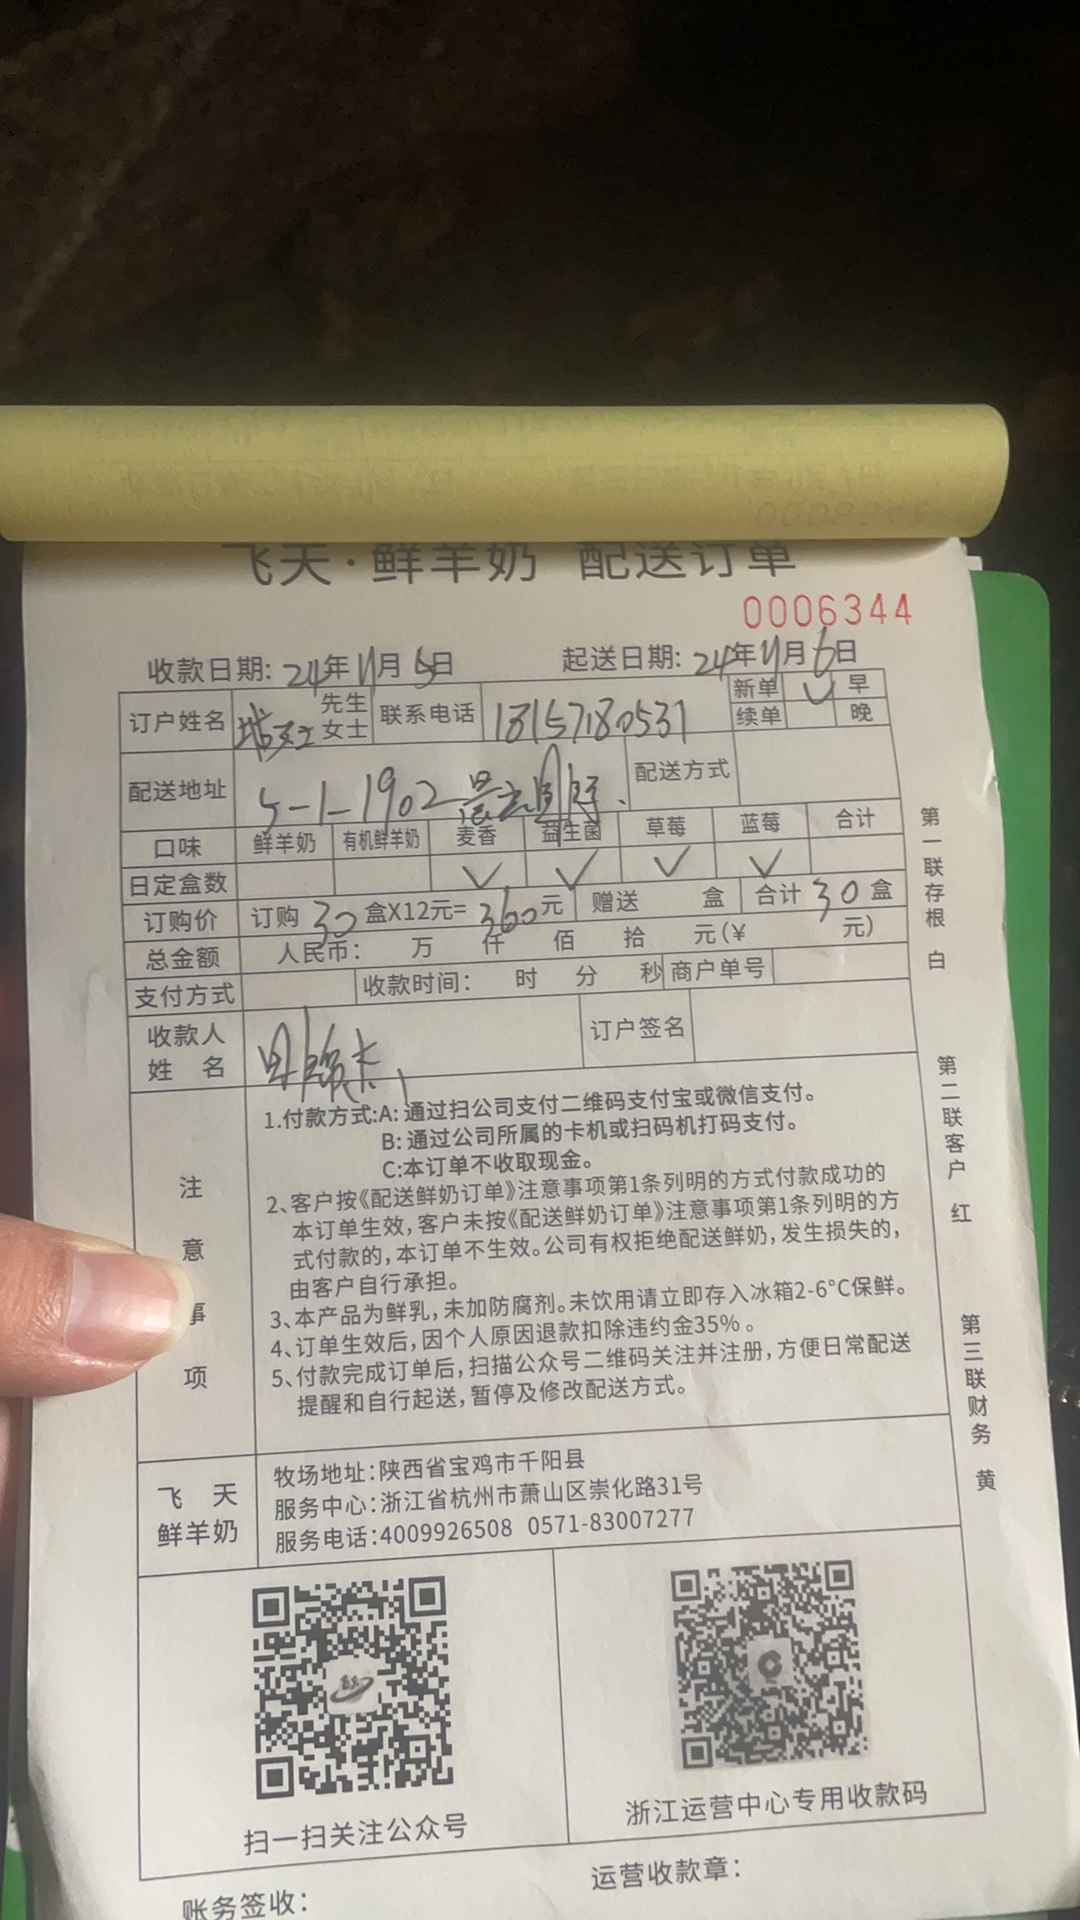 飞天·鲜羊奶 配送订单
0006344
收款日期: 24年11月5日 起送日期: 24年11月6日
订户姓名 女士 先生 女士 联系电话 18157180531 新单 ✓ 早
续单 晚
配送地址 5-1-1902 配送方式
口味 鲜羊奶 有机鲜羊奶 麦香 益生菌 草莓 蓝莓 合计
日定盒数 ✓ ✓ ✓ ✓
订购价 订购 30 盒X12元= 360元 赠送 盒 合计 30 盒
总金额 人民币: 万 仟 佰 拾 元(¥ 元)
支付方式 收款时间: 时 分 秒 商户单号
收款人
姓 名 订户签名
注意事项
1.付款方式:A: 通过扫公司支付二维码支付宝或微信支付。
B: 通过公司所属的卡机或扫码机打码支付。
C:本订单不收取现金。
2、客户按《配送鲜奶订单》注意事项第1条列明的方式付款成功的
本订单生效,客户未按《配送鲜奶订单》注意事项第1条列明的方
式付款的,本订单不生效。公司有权拒绝配送鲜奶,发生损失的,
由客户自行承担。
3、本产品为鲜乳,未加防腐剂。未饮用请立即存入冰箱2-6°C保鲜。
4、订单生效后,因个人原因退款扣除违约金35%。
5、付款完成订单后,扫描公众号二维码关注并注册,方便日常配送
提醒和自行起送,暂停及修改配送方式。
飞 天
鲜羊奶
牧场地址:陕西省宝鸡市千阳县
服务中心:浙江省杭州市萧山区崇化路31号
服务电话:4009926508 0571-83007277
扫一扫关注公众号
浙江运营中心专用收款码
账务签收:
运营收款章:
第一联存根 白
第二联客户 红
第三联财务 黄